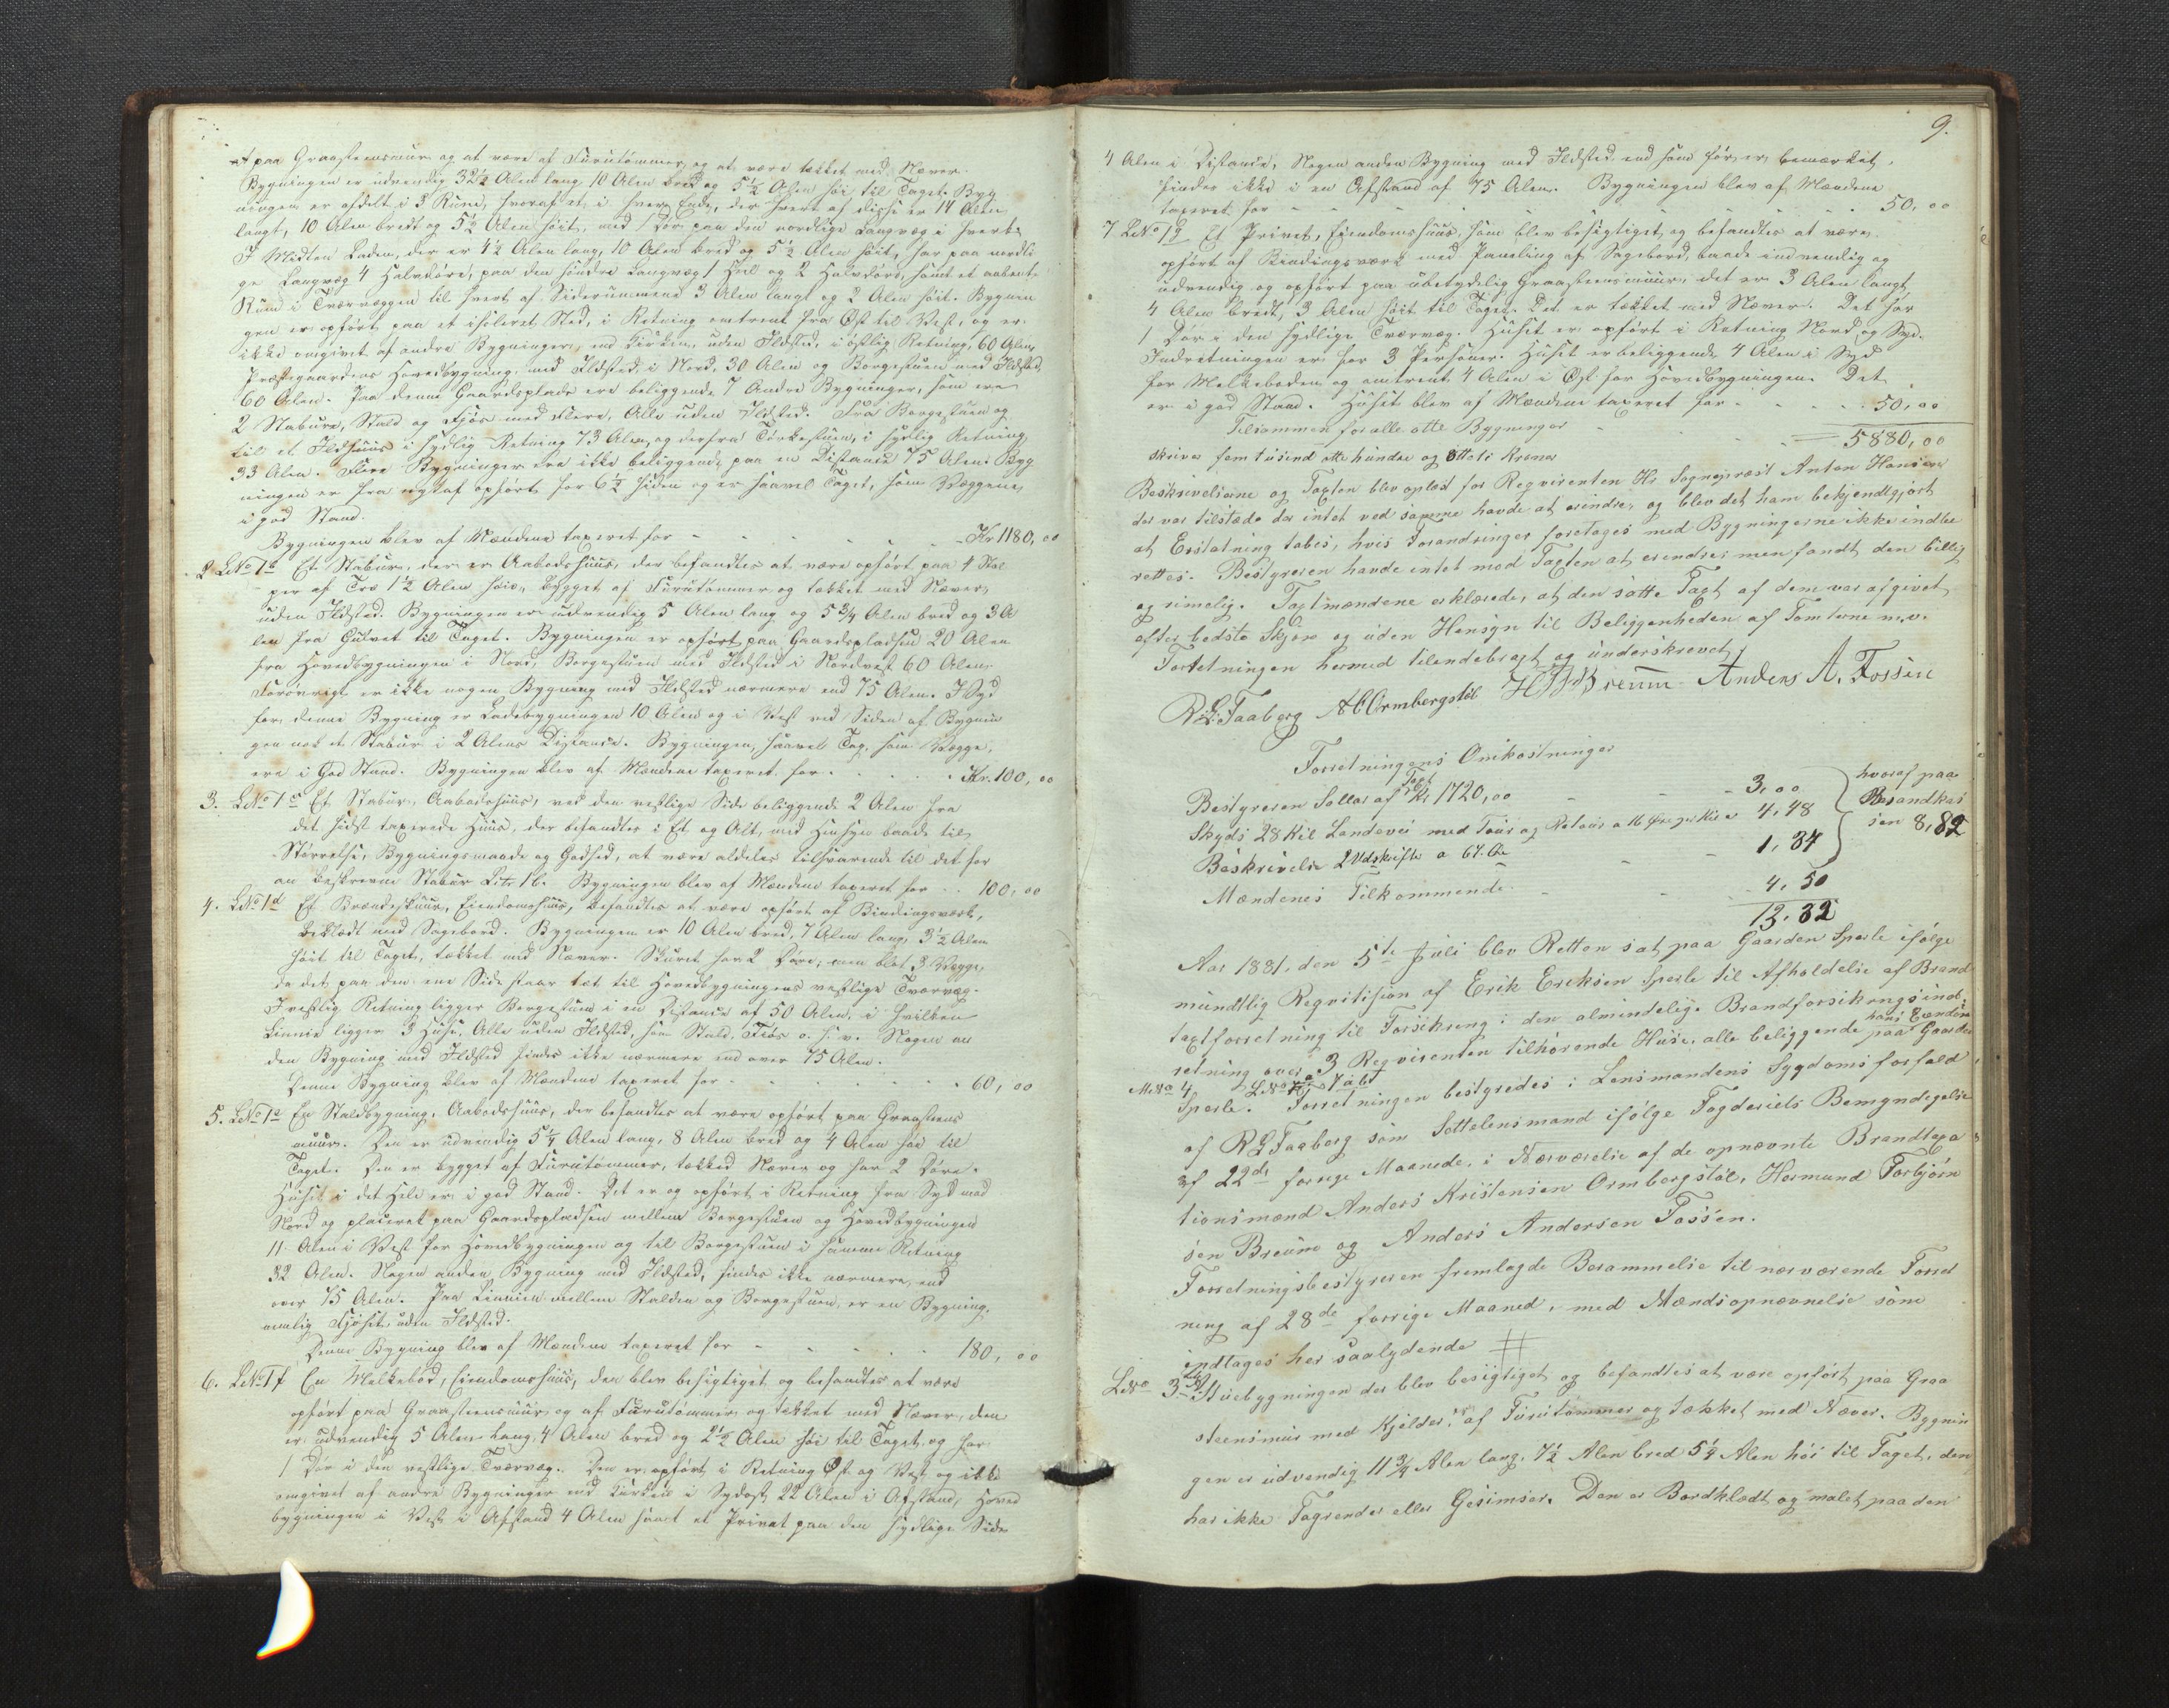 at paa Graasteensmur og at være af Furutømmer, og at være tækket med Næver.
Bygningen er udvendig 32½ Alen lang 10 Alen bred og 5½ Alen høi til Taget. Byg
ningen er afdelt i 3 Rum, hvoraf et i hver Ende, der hvert af disse er 14 Alen
langt, 10 Alen bredt og 5½ Alen høit, med 1 Dør paa den nordlige Langvæg i hvert.
I Midten Laden, der er 4½ Alen lang, 10 Alen bred og 5½ Alen høit, har paa nordli
ge Langvæg 4 Halvdøre, paa den søndre Langvæg 1 Heel og 2 Halvdøre, samt et aabent
Rum i Tværvæggen til hvert af Siderummene 3 Alen langt og 2 Alen høit. Bygnin
gen er opført paa et isoleret Sted, i Retning omtrent fra Øst til Vest, og er
ikke omgivet af andre Bygninger, end Kirken, uden Ildsted, i østlig Retning, 60 Alen,
Præstegaardens Hovedbygning, med Ildsted, i Nord, 30 Alen og Borgestuen med Ildsted,
60 Alen. Paa denne Gaardsplads ere beliggende 7 Andre Bygninger, som ere
2 Stabure, Stald og Fjøs med flere, Alle uden Ildsted. Fra Borgestuen og
til et Ildhuus i sydlig Retning 73 Alen, og derfra Tørkestuen, i sydlig Retning
33 Alen. Flere Bygninger ere ikke beliggende paa en Distance 75 Alen. Byg
ningen er fra nytaf opført for 6½ siden og er saavel Taget, som Væggene,
i god Stand.
Bygningen blev af Mændene taxeret for - - - Kr 1180,00
2 LNo 1b Et Stabur, der er Aabodshuus, der befandtes at være opført paa 4 Stol
per af Træ 1½ Alen høie, bygget af Furutømmer og tækket med Næver,
uden Ildsted. Bygningen er udvendig 5 Alen lang og 5¾ Alen bred og 3 A
len fra Gulvet til Taget. Bygningen er opført paa Gaardspladsen 20 Alen
fra Hovedbygningen i Nord, Borgestuen med Ildsted i Nordvest 60 Alen.
Forøvrigt er ikke nogen Bygning med Ildsted nærmere end 75 Alen. I Syd
for denne Bygning er Ladebygningen 10 Alen og i Vest ved Siden af Bygnin
gen nok et Stabur i 2 Alens Distance. Bygningen, saavel Tag, som Vægge,
ere i God Stand. Bygningen blev af Mændene taxeret for - - - Kr. 100,00
3. LNo 1c Et Stabur, Aabodshuus, ved den vestlige Side beliggende 2 Alen fra
det sidst taxerede Huus, der befandtes i Et og Alt, med Hensyn baade til
Størrelse, Bygningsmaade og Godhed, at være aldeles tilsvarende til det for
an beskrevne Stabur Litr 1b. Bygningen blev af Mændene taxeret for - - 100,00
4. LNo 1d Et Brændeskuur, Eiendomshuus, befandtes at være opført af Bindingsværk,
beklædt med Sagebord. Bygningen er 10 Alen bred, 7 Alen lang, 3½ Alen
høit til Taget, tækket med Næver. Skuret har 2 Døre, men blot 3 Vægge,
da det paa den ene Side staar tæt til Hovedbygningens vestlige Tværvæg.
I vestlig Retning ligger Borgestuen i en Distance af 50 Alen, i hvilken
Linnie ligger 3 Huse, Alle uden Ildsted, som Stald, Fjøs o. s. v. Nogen an
den Bygning med Ildsted findes ikke nærmere end over 75 Alen.
Denne Bygning blev af Mændene taxeret for - - - 60,00
5. LNo 1e En Staldbygning, Aabodshuus, der befandtes at være opført paa Graasteens
muur. Den er udvendig 5¼ Alen lang, 8 Alen bred og 4 Alen høi til
Taget. Den er bygget af Furutømmer, tækked Næver og har 2 Døre.
Huset i det Hele er i god Stand. Det er og opført i Retning fra Syd mod
Nord og placeret paa Gaardspladsen mellem Borgestuen og Hovedbygningen
11 Alen i Vest for Hovedbygningen og til Borgestuen i samme Retning
32 Alen. Nogen anden Bygning med Ildsted, findes ikke nærmere, end
over 75 Alen. Paa Linnien mellem Stalden og Borgestuen, er en Bygning,
nemlig Fjøset, uden Ildsted.
Denne Bygning blev af Mændene taxeret for - - - 180,00
6. LNo 1f En Melkebod, Eiendomshuus, den blev besigtiget og befandtes at være
opført paa Graasteensmuur og af Furutømmer og tækket med Næver, den
er udvendig 5 Alen lang, 4 Alen bred og 2½ Alen høi til Taget, og har
1 Dør i den vestlige Tværvæg. Den er opført i Retning Øst og Vest og ikke
omgivet af andre Bygninger end Kirken i Sydost 22 Alen i Afstand, Hoved
bygningen i Vest i Afstand 4 Alen samt et Privet paa den sydlige Side
9.
4 Alen i Distance, Nogen anden Bygning med Ildsted end som før er bemærket,
findes ikke i en Afstand af 75 Alen. Bygningen blev af Mændene
taxeret for - - - 50,00
7 LNo 1g Et Privet, Eiendomshuus, som blev besigtiget og befandtes at være
opført af Bindingsværk med Paneling af Sagebord, baade indvendig og
udvendig og opført paa ubetydelig Graasteensmuur, det er 3 Alen langt,
4 Alen bredt, 3 Alen høit til Taget. Det er tækket med Næver. Det har
1 Dør i den sydlige Tværvæg. Huset er opført i Retning Nord og Syd.
Indretningen er for 3 Personer. Huset er beliggende 4 Alen i Syd
for Melkeboden og omtrent 4 Alen i Øst for Hovedbygningen. Det
er i god Stand. Huset blev af Mændene taxeret for - - - 50,00
Tilsammen for alle otte Bygninger - - - 5880,00
skriver fem tusind otte hundre og otteti Kroner
Beskrivelserne og Taxten blev oplæst for Reqvirenten Hr Sognepræst Anton Hansen
der var tilstæde der intet ved samme havde at erindre, og blev det ham bekjendtgjort
at Erstatning tabes, hvis Forandringer foretages med Bygningerne ikke indbe
rettes. Bestyreren havde intet mod Taxten at erindre, men fandt den billig
og rimelig. Taxtmændene erklærede, at den satte Taxt af dem var afgivet
efter bedste Skjøn og uden Hensyn til Beliggenheden af Tomterne m.v.
Forretningen hermed tilendebragt og underskrevet.
R. L. Faaberg A C Ormbergstøl H Breum Anders A. Fossen
Forretningens Omkostninger
Bestyreren Sallar af Taxt Kr 1720,00 - - - 3,00
Skyds 28 Kil Landevei med Tour og Retour a 16 Øre per Kil 4,48
Beskrivelse 2 Udskrifter a 67. Øre - 1,34
hvoraf paa
Brandkas
sen 8,82
Mændenes Tilkommende - - - 4,50
13,32
Aar 1881, den 5te Juli blev Retten sat paa Gaarden Sperle ifølge
mundtlig Reqvisition af Erik Eriksen Sperle til Afholdelse af Brand
taxtforretning til Forsikring i den almindelige Brandforsikringsind-
retning over 3 Reqvirenten tilhørende Huse, alle beliggende paa hans Eiendom Gaarden
M.No 4 LNo 7 a b
Sperle. Forretningen bestyredes i Lensmandens Sygdomsforfald
af R L Faaberg som Sættelensmand ifølge Fogderiets Bemyndigelse
af 22de forrige Maanede, i Nærværelse af de opnævnte Brandtaxa
tionsmænd Anders Kristensen Ormbergstøl, Hermund Torbjørn
sen Breum og Anders Andersen Fossen.
Forretningsbestyreren fremlagde Berammelse til nærværende Forret
ning af 28de forrige Maaned, med Mændsopnævnelse som
indtages her saalydende #
LNo 3 a Stuebygningen der blev besigtiget og befandtes at være opført paa Graa
steensmur med Kjelder, af Furutømmer og tækket med Næver. Bygnin
gen er udvendig 11¾ Alen lang, 7½ Alen bred 5¼ Alen høi til Taget, den
har ikke Tagrender eller Gesimser. Den er Bordklædt og malet paa den